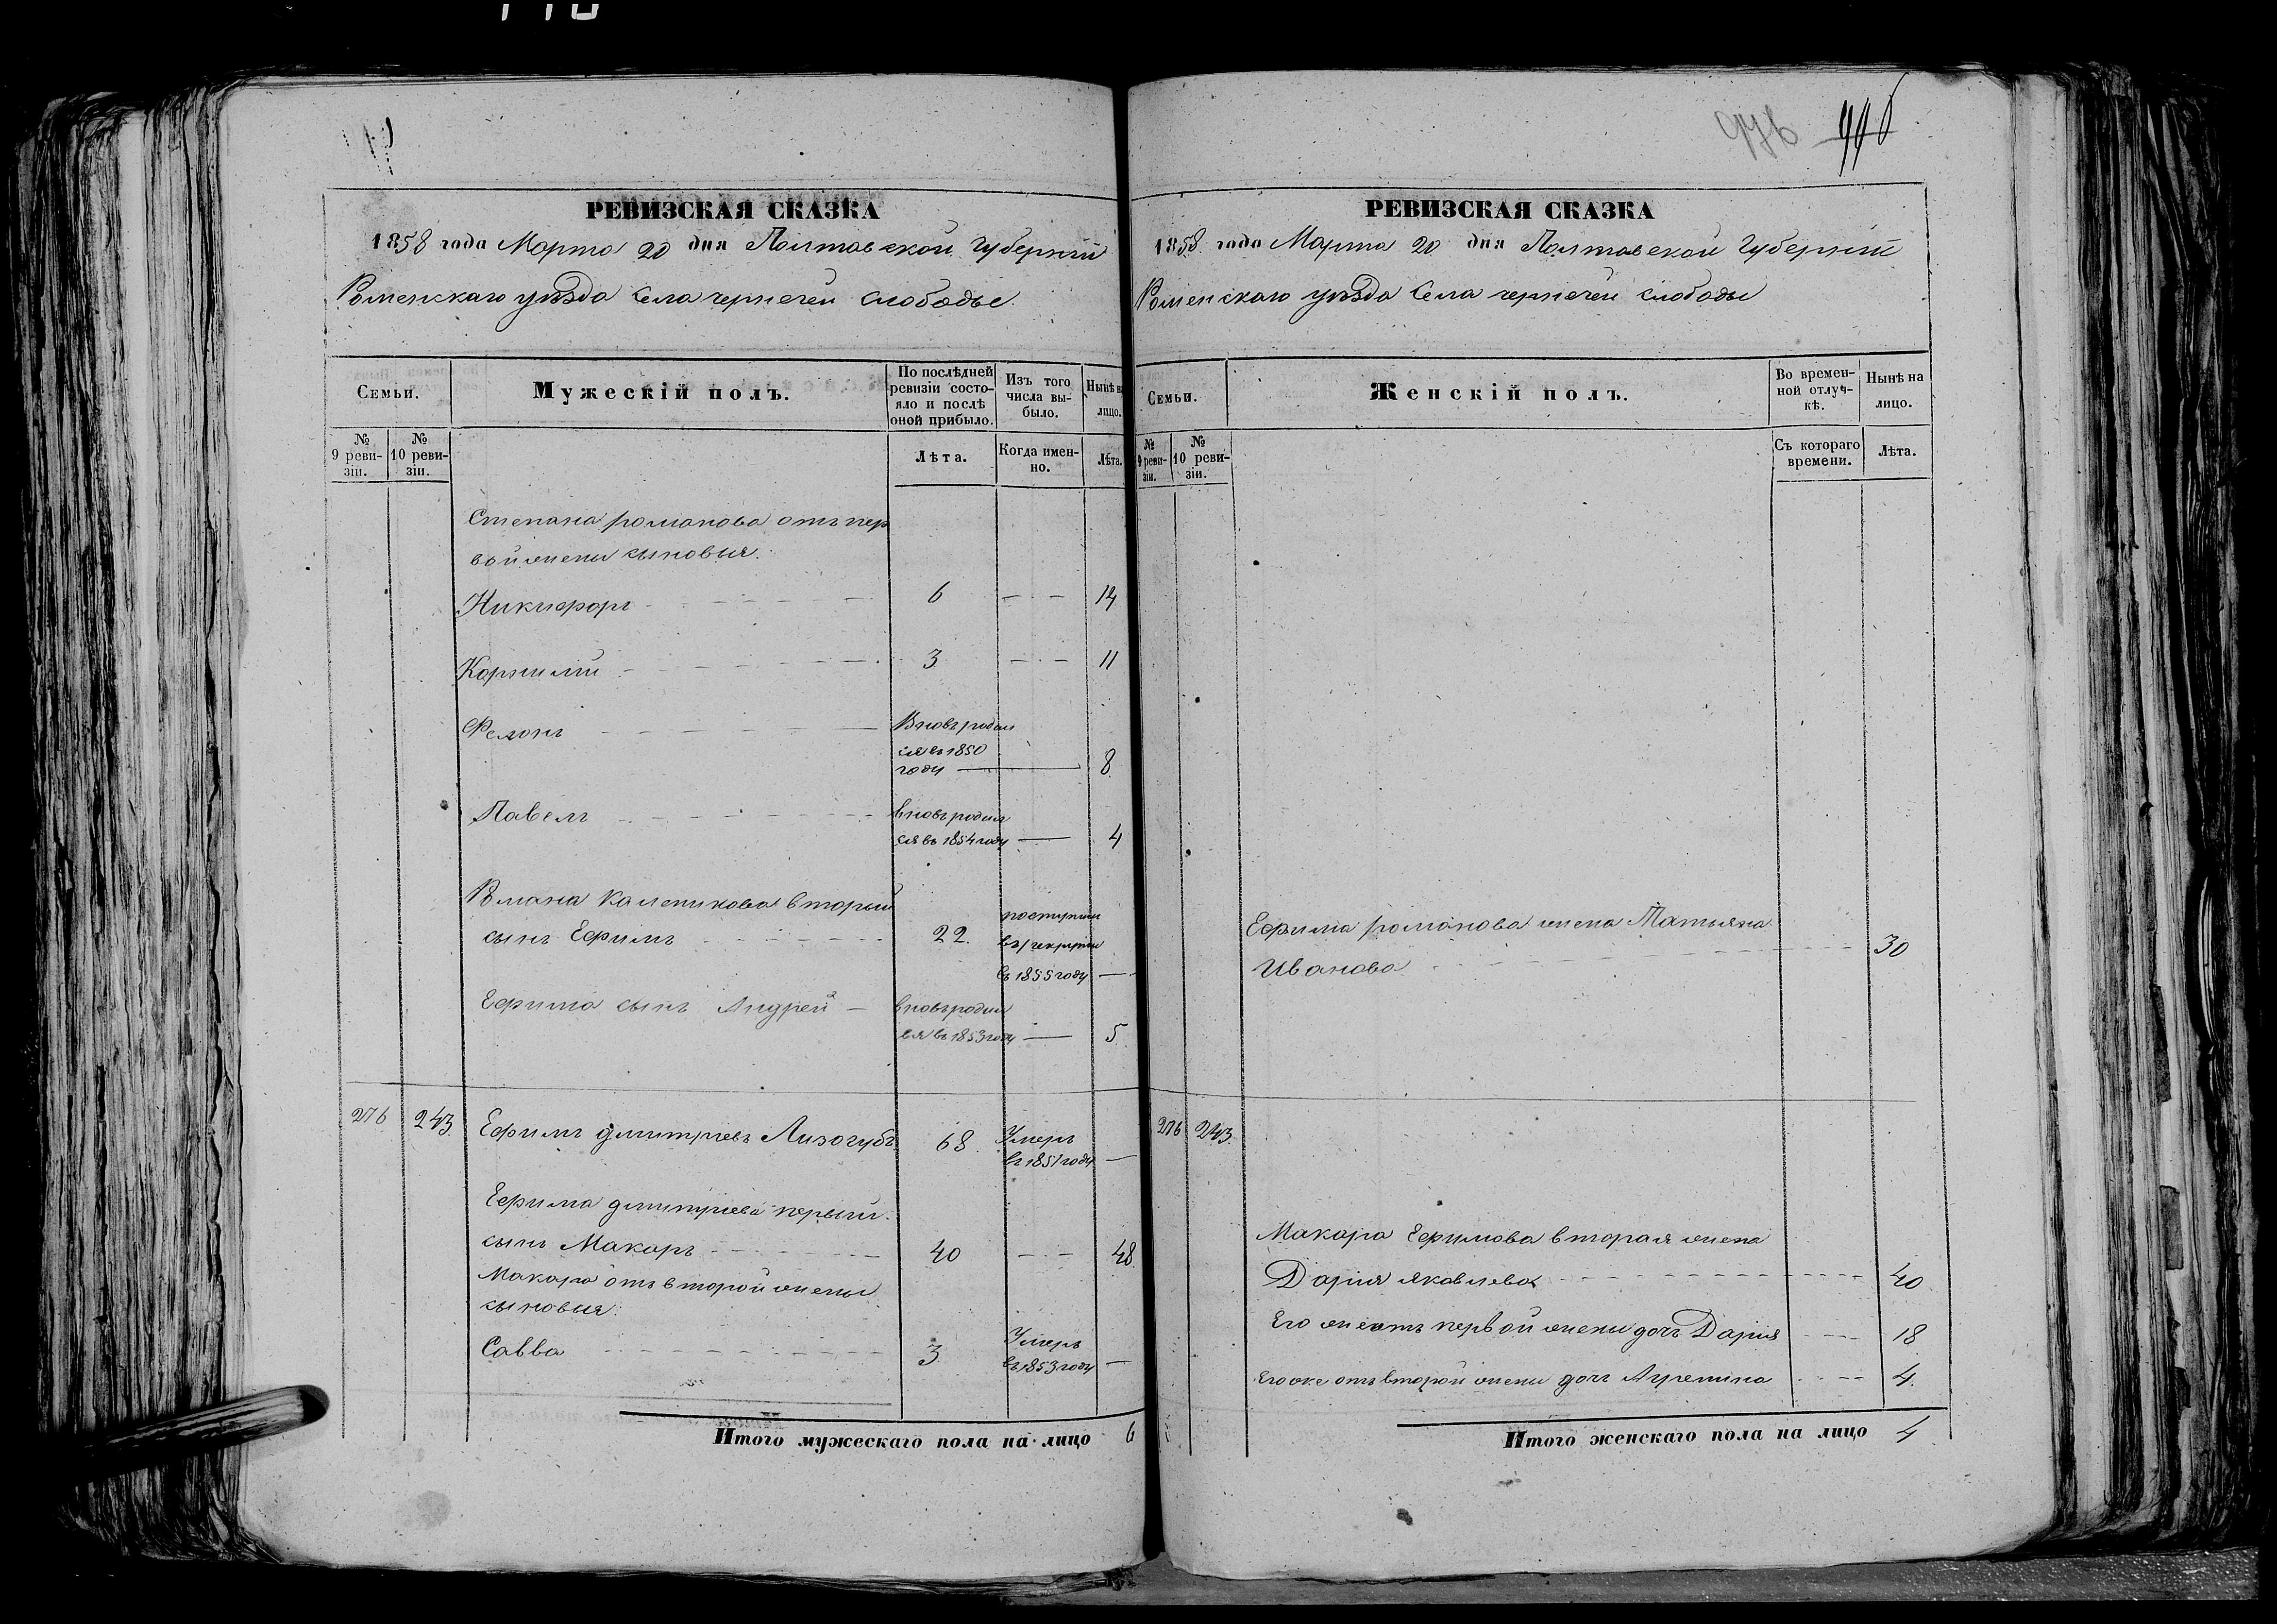 976 446
РЕВИЗСКАЯ СКАЗКА
1858 года Марта 20 дня Полтавской Губерніи
Роменскаго уѣзда Села чернечей слободы.
Семьи.
Мужескій полъ.
По послѣдней ревизіи состояло и послѣ оной прибыло.
Изъ того числа выбыло.
Нынѣ на лицо.
№ 9 ревизіи.
№ 10 ревизіи.
Лѣта.
Когда именно.
Лѣта.
Степана романова отъ пер
вой жены сыновья.
Никифоръ 6 14
Корнилій 3 11
Филонъ
Вновь родил
ся въ 1850
году 8
Павелъ
вновь родил
ся въ 1854 году 4
Романа Каленикова вторый
сынъ Ефимъ 22.
поступил
въ рекруты
въ 1855 году
Ефима сынъ Андрей
вновь родил
ся въ 1853 году 5
276 243. Ефимъ дмитріевъ Лизогубъ 68
Умеръ
въ 1851 году
Ефима дмитріева первый
сынъ Макаръ 40 48
Макара отъ второй жены
сыновья:
Савва 3
Умеръ
въ 1853 году
Итого мужескаго пола на лицо 6
РЕВИЗСКАЯ СКАЗКА
1858 года Марта 20 дня Полтавской Губерніи
Роменскаго уѣзда Села чернечей слободы
Семьи.
Женскій полъ.
Во временной отлучкѣ.
Нынѣ на лицо.
№ 9 ревизіи.
№ 10 ревизіи.
Съ котораго времени.
Лѣта.
Ефима романова жена Татьяна
Иванова 30
276 243.
Макара Ефимова вторая жена
Дарія яковлева 40
Его же отъ первой жены дочь Дарія 18
Его же отъ второй жены дочь 4.
Итого женскаго пола на лицо 4